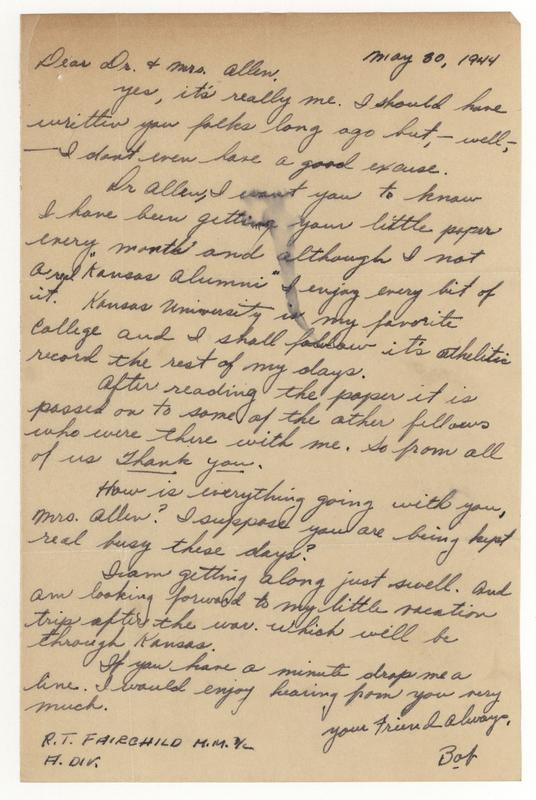 May 30, 1944
Dear Dr. & Mrs. Allen,
yes, it's really me. I should have
written you folks long ago but, — well,—
— I dont even have a good excuse.
Dr Allen, I want you to know
I have been getting your little paper
every month and although I not
a real "Kansas Alumni" I enjoy every bit of
it. Kansas University is my favorite
College and I shall follow it's atheletic
record the rest of my days.
After reading the paper it is
passed on to some of the other fellows
who were there with me. So from all
of us Thank you.
How is everything going with you,
Mrs. Allen? I suppose you are being kept
real busy these days?
I am getting along just swell. And
am looking forward to my little vacation
trip after the war. which will be
through Kansas.
If you have a minute drop me a
line. I would enjoy hearing from you very
much.
your Friend Always,
Bob
R.T. FAIRCHILD M.M. 3/c
A. DIV.